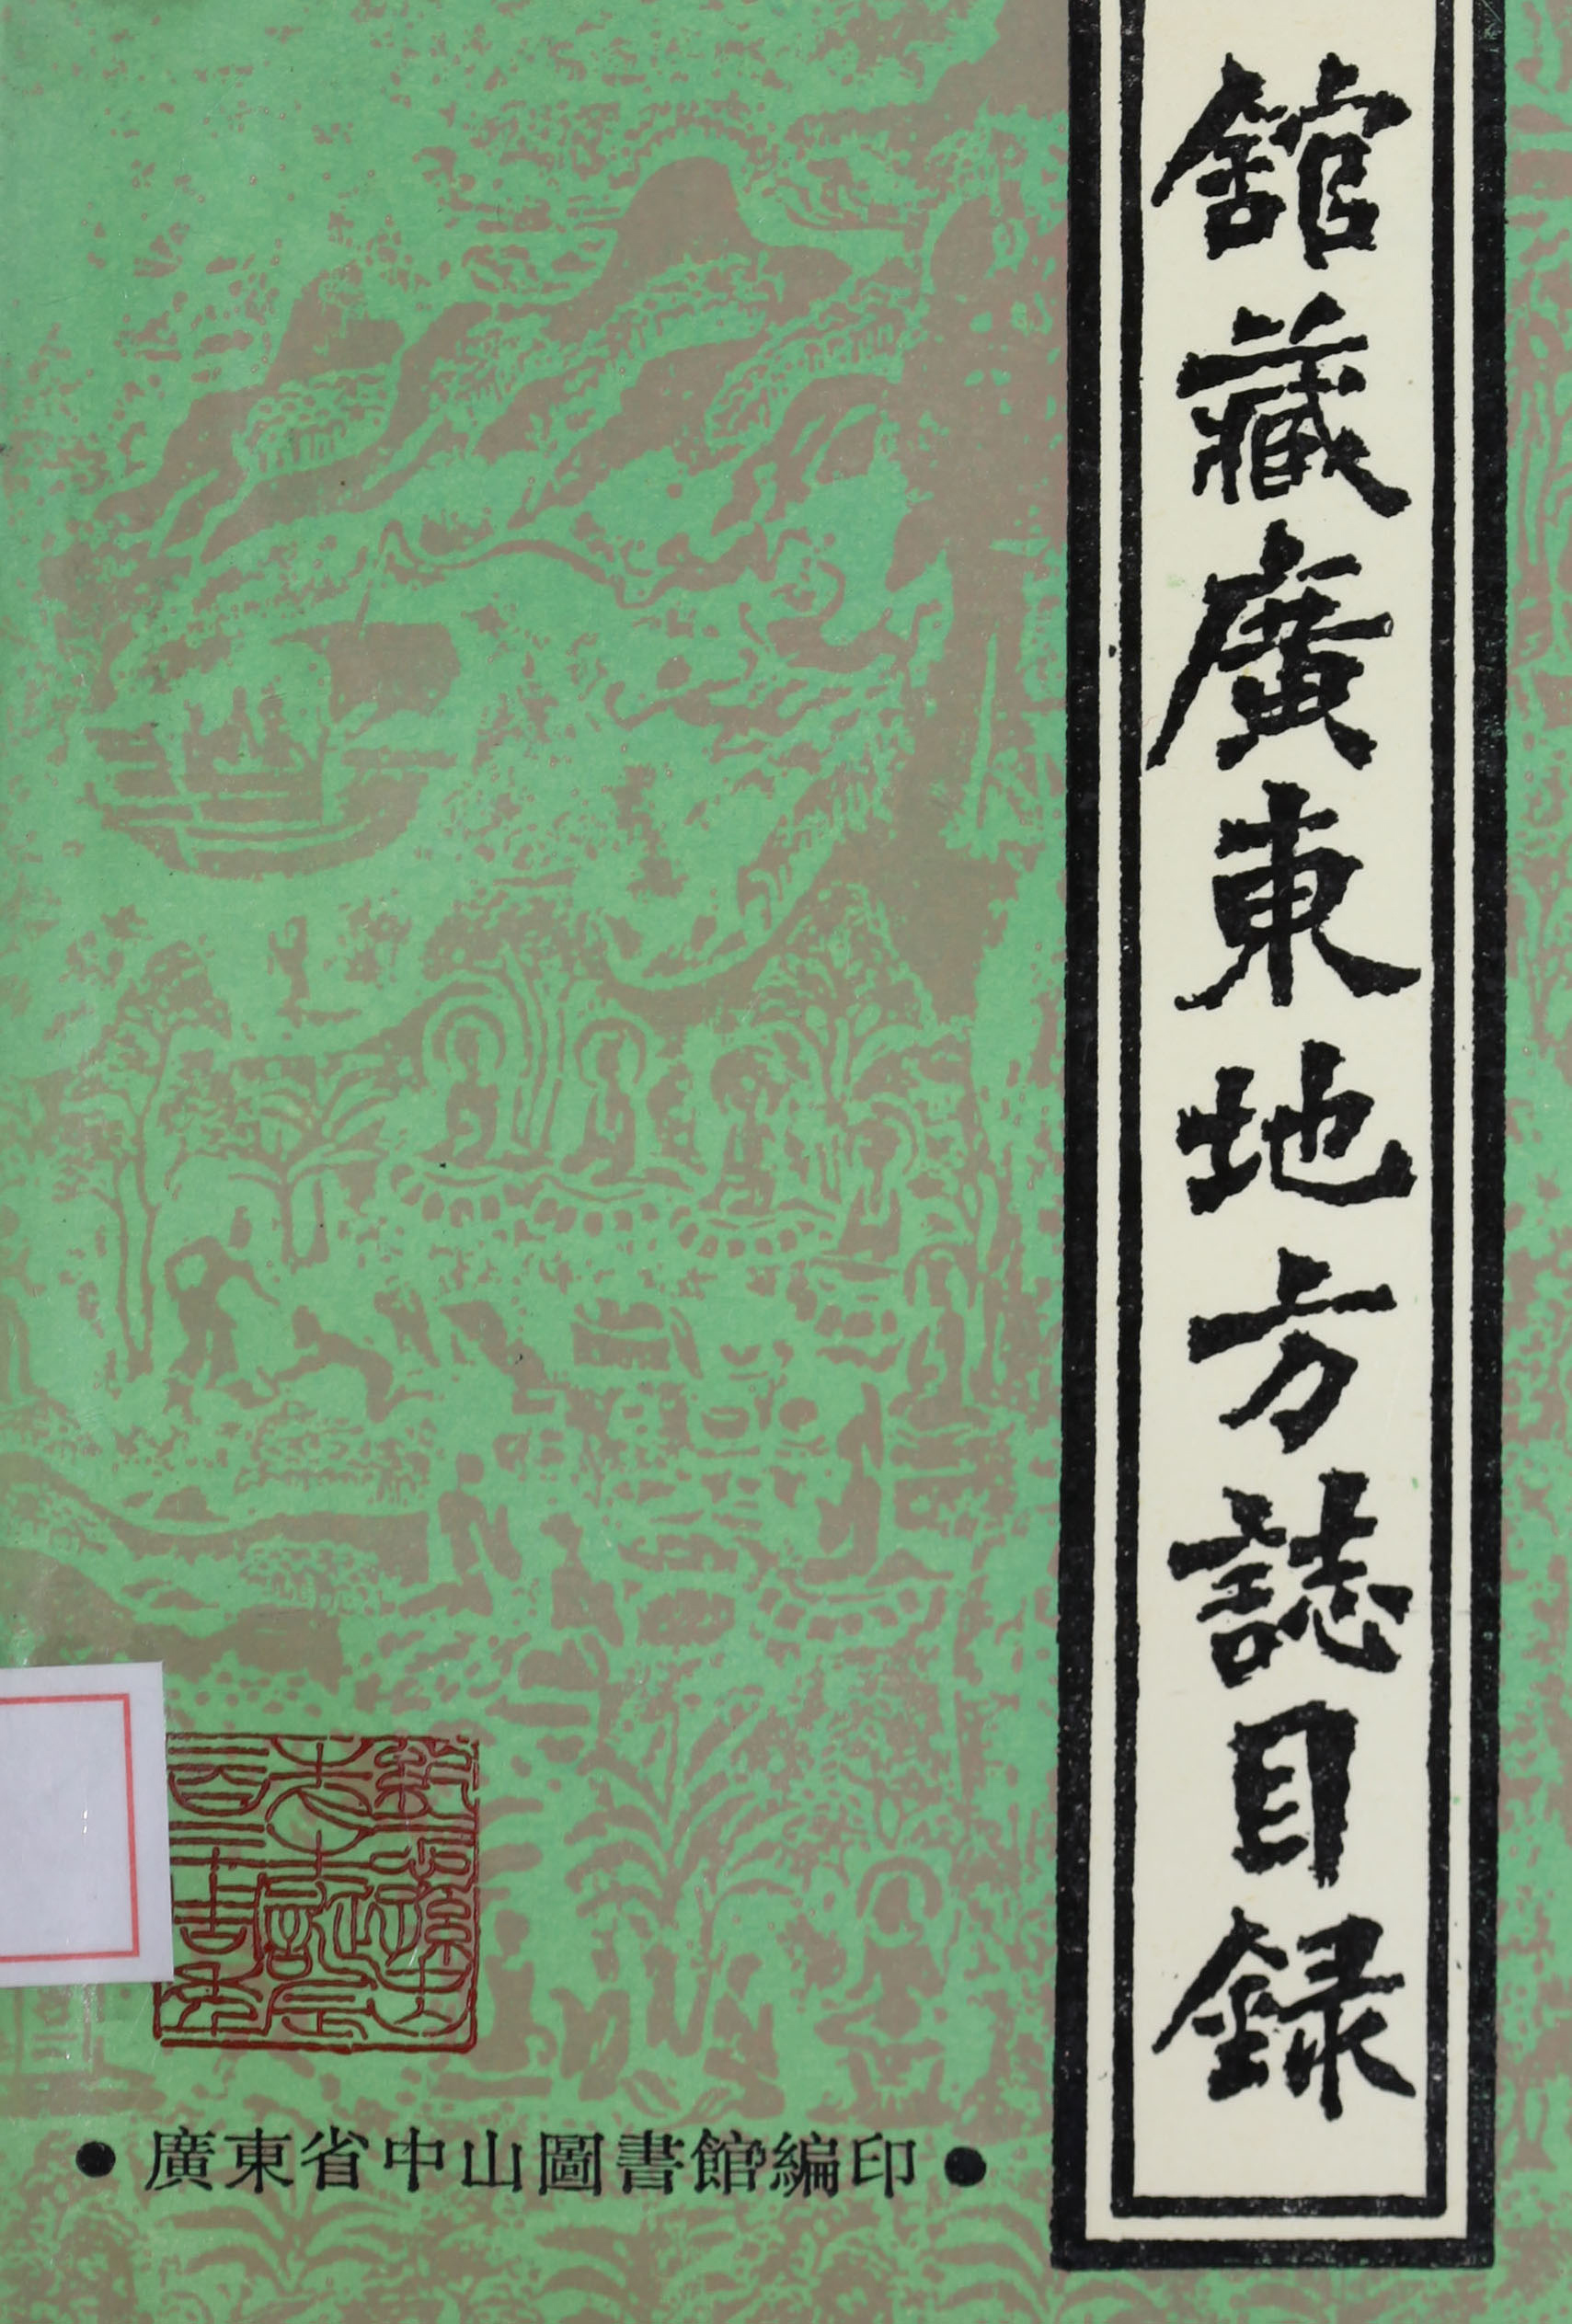 舘藏廣東地方誌目録
●廣東省中山圖書館編印●